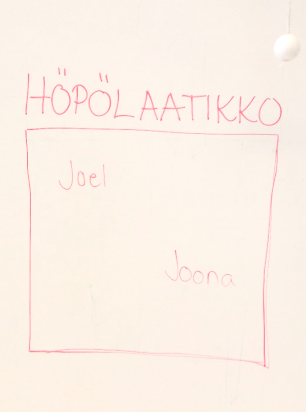 HÖPÖLAATIKKO
Joel
Joona